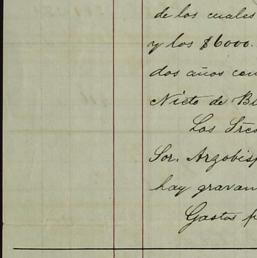 de los cuales
y los $6000.
dos años con
Nieto de B
Los Sres
Sor. Arzobisp
hay gravam
Gastos p